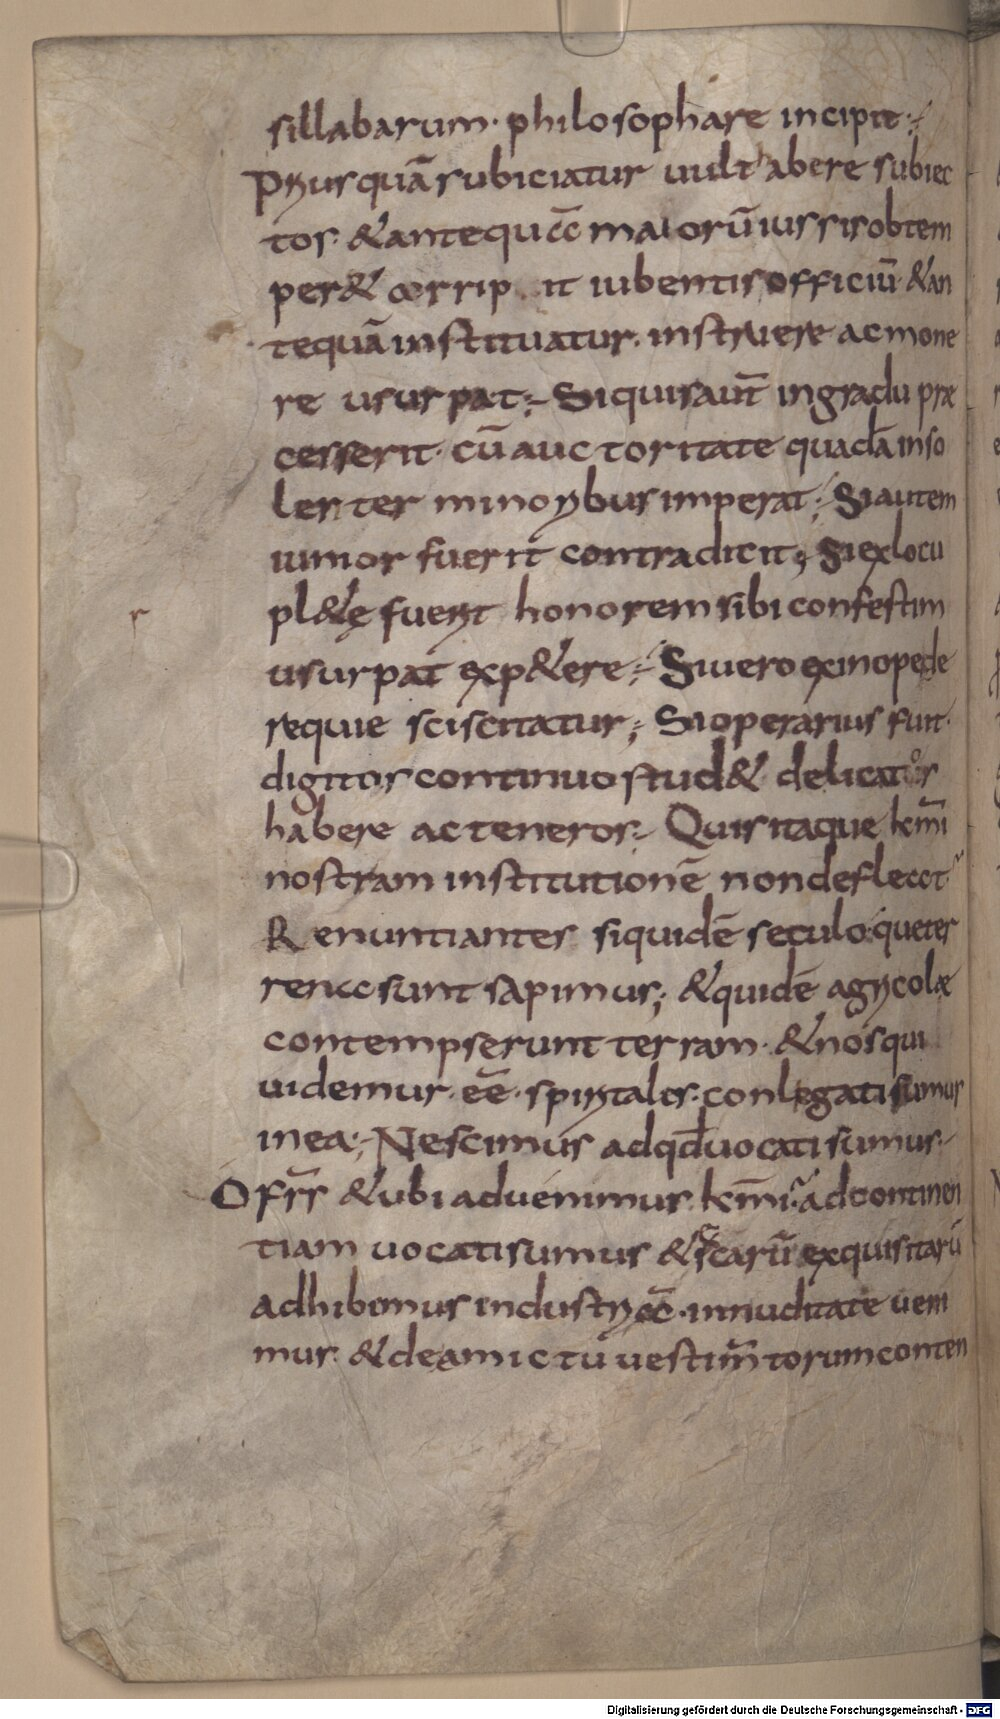 sillabarum· philosophare incipit:-
Priusquā subiciatur uult abere subiec
tos· &antequā maiorū iussis obtem
per& corrip it iubentis officiū· &an
tequā instituatur· instruere ac mone
re usurpat:- Si quis aut̄ in gradu præ
cesserit· cū auctoritate quadā inso
lenter minoribus imperat:- Si autem
iunior fuerit contradicit; Si ex locu
pl&ę fuerit honorem sibi confestim
usurpat exp&ere:- Si uero ex inope de
requie sciscitatur; Si operarius fuit·
digitos continuo stud& delicatos
habere ac teneros:- Quis itaque km̄i
nostram institutionē non deflect
Renuntiantes siquidē seculo· que ter
rena sunt sapimus; &quidē agricolæ
contempserunt terram· &nos qui
uidemur· ēē· spiritales· conlegati sumus
in ea:- Nescimus ad qd̄ uocati sumus·-
O fr̄s &ubi aduenimus km̄i· ad continen
tiam uocati sumus &escarū exquisitarū
adhibemus industriā· in nuditate ueni
mus· &de amictū uestim̄torum conten
r
Digitalisierung gefördert durch die Deutsche Forschungsgemeinschaft - DFG